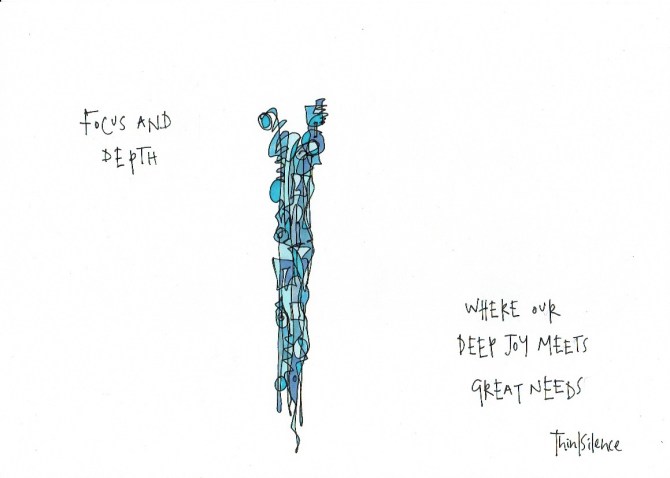 FOCUS AND
DEPTH
WHERE OUR
DEEP JOY MEETS
GREAT NEEDS
Think|Silence